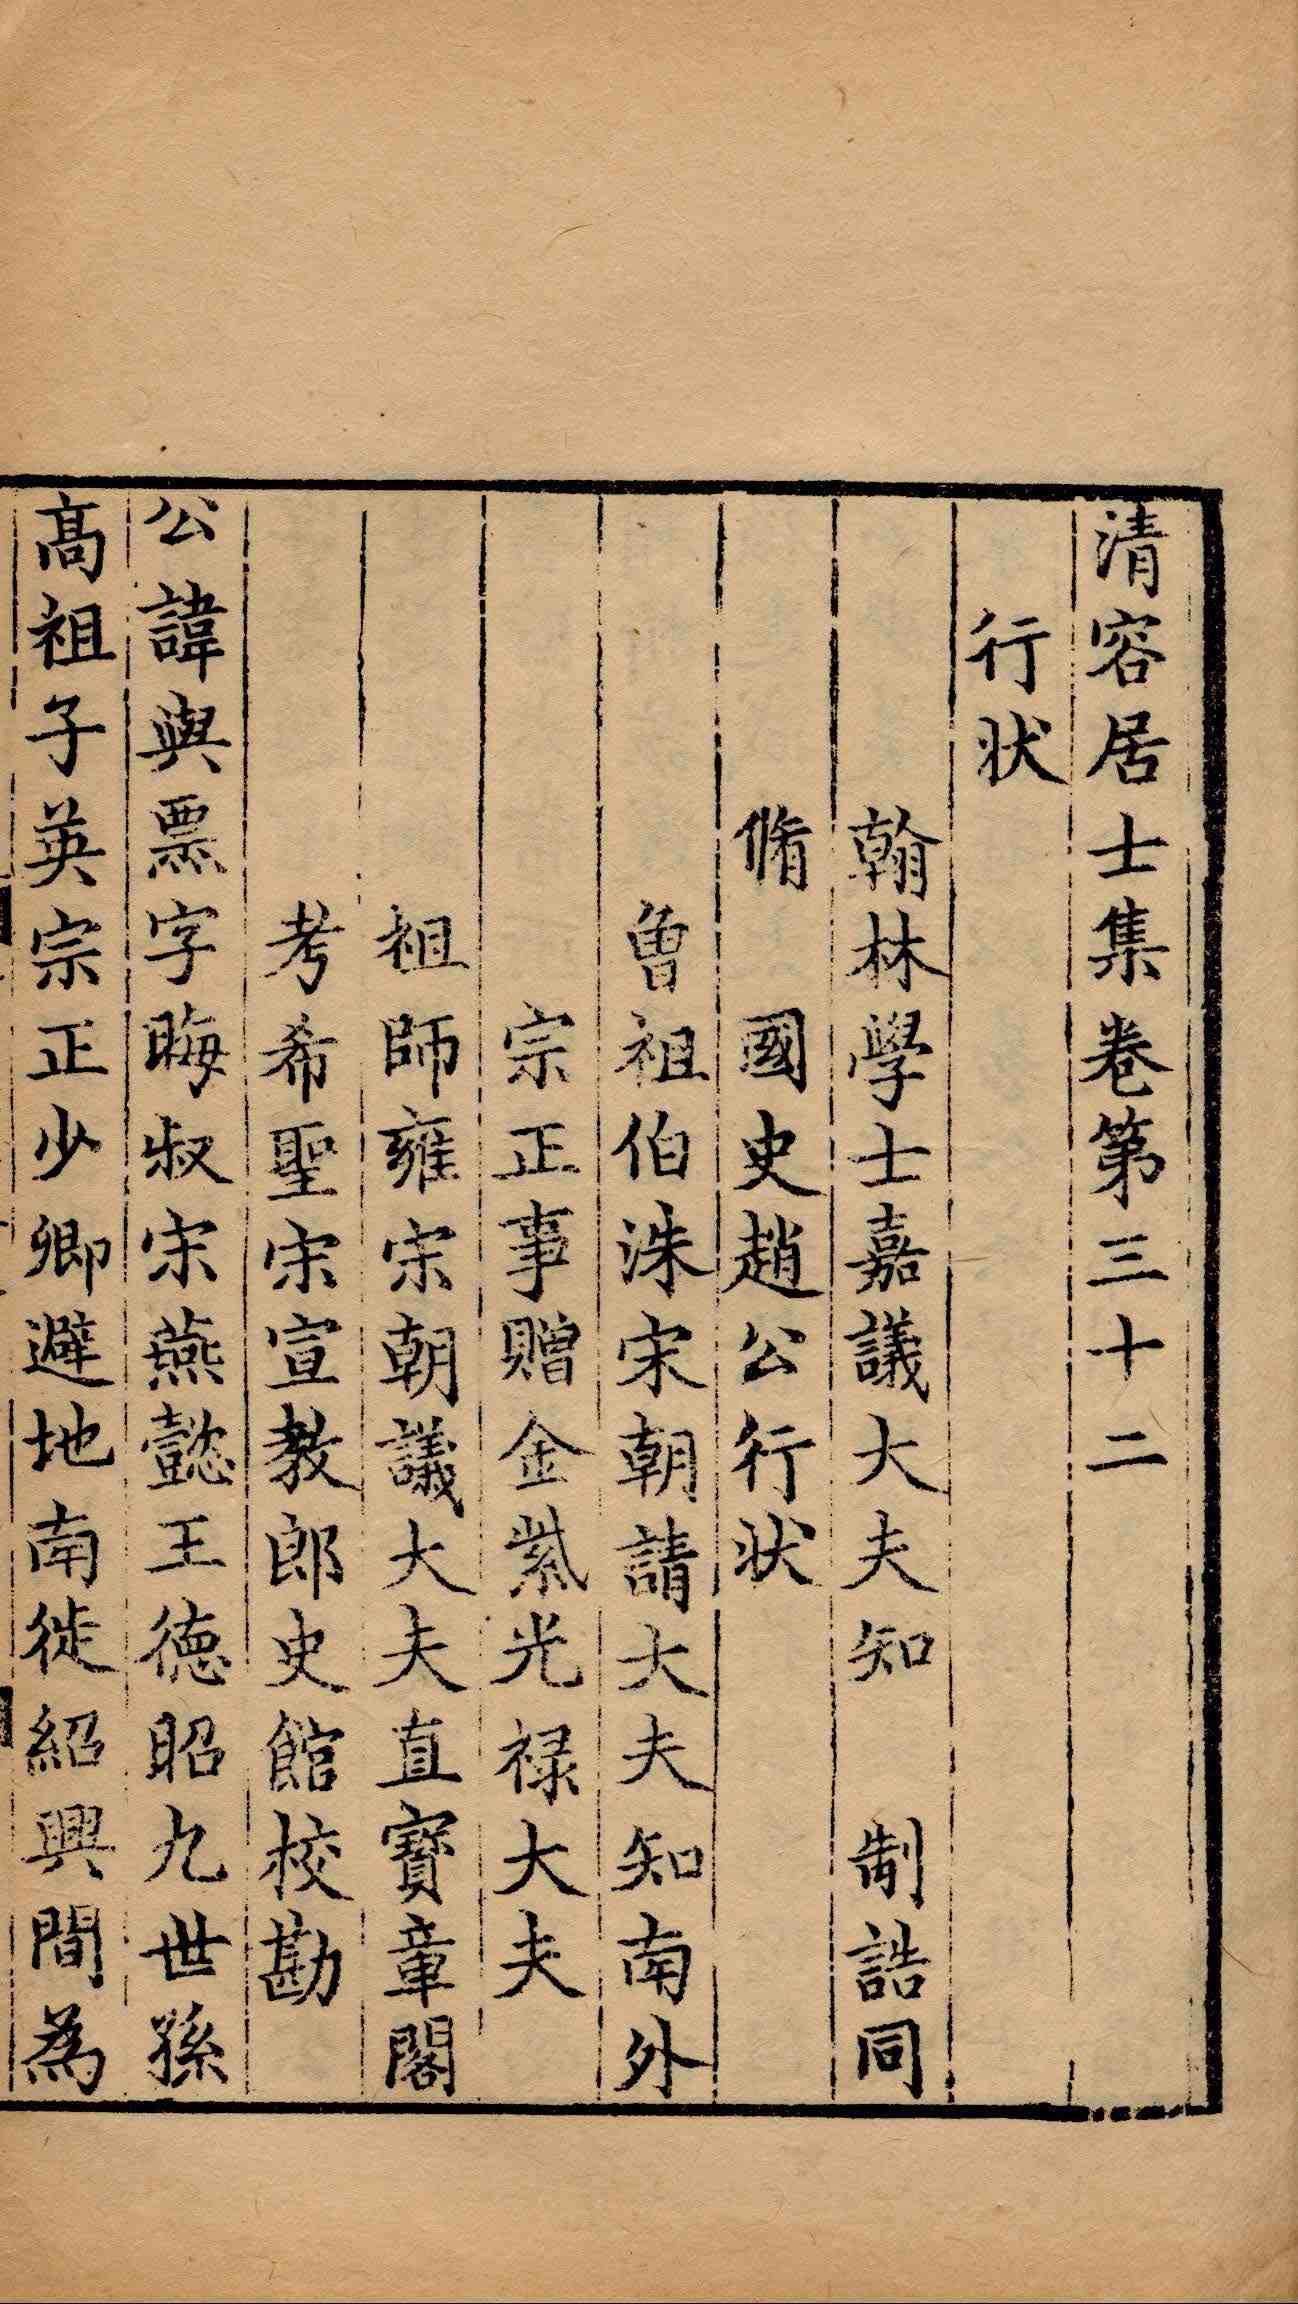 清容居士集卷第三十二
行状
翰林學士嘉議大夫知　制誥同
脩　國史趙公行状
曾祖伯洙宋朝請大夫知南外
宗正事贈金紫光禄大夫
祖師雍宋朝議大夫直寶章閣
考希聖宋宣教郎史館校勘
公諱與票字晦叔宋燕懿王德昭九世孫
髙祖子英宗正少卿避地南徙紹興間為